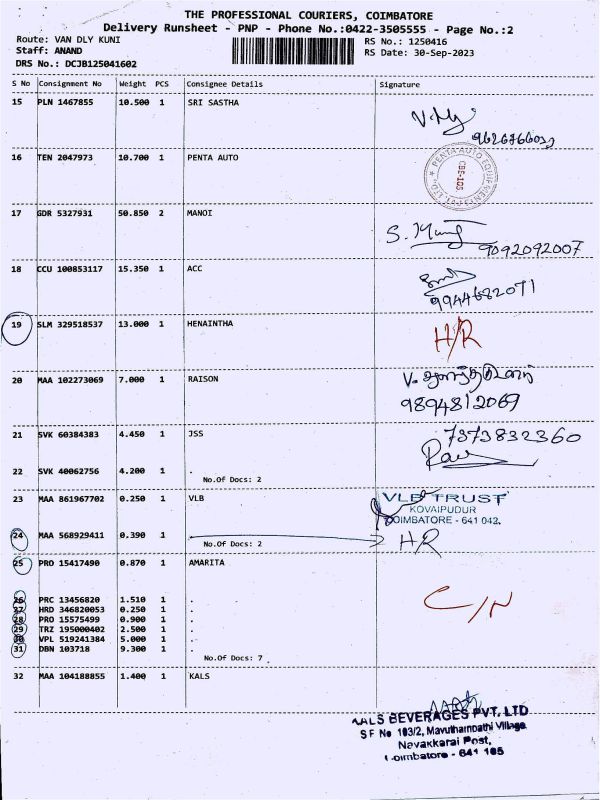 THE PROFESSIONAL COURIERS, COIMBATORE
Delivery Runsheet - PNP - Phone No.:0422-3505555 - Page No.:2
Route: VAN DLY KUNI RS No.: 1250416
Staff: ANAND RS Date: 30-Sep-2023
DRS No.: DCJB125041602
S No Consignment No Weight PCS Consignee Details Signature
15 PLN 1467855 10.500 1 SRI SASTHA
16 TEN 2047973 10.700 1 PENTA AUTO
PENTA AUTO EQUIPMENTS PVT. LTD.
CBE-105
17 GDR 5327931 50.850 2 MANOI
9092092007
18 CCU 100853117 15.350 1 ACC
9944682071
19 SLM 329518537 13.000 1 HENAINTHA H/R
20 MAA 102273069 7.000 1 RAISON
9894812069
21 SVK 60384383 4.450 1 JSS 7373832360
22 SVK 40062756 4.200 1 .
No.Of Docs: 2
23 MAA 861967702 0.250 1 VLB
VLB TRUST
KOVAIPUDUR
COIMBATORE - 641 042.
24 MAA 568929411 0.390 1 HR
No.Of Docs: 2
25 PRO 15417490 0.870 1 AMARITA
26 PRC 13456820 1.510 1 . C/N
27 HRD 346820053 0.250 1 .
28 PRO 15575499 0.900 1 .
29 TRZ 195000402 2.500 1 .
30 VPL 519241384 5.000 1 .
31 DBN 103718 9.300 1 .
No.Of Docs: 7
32 MAA 104188855 1.400 1 KALS
KALS BEVERAGES PVT. LTD
S F No 103/2, Mavuthampathi Village
Navakkarai Post,
Coimbatore - 641 105